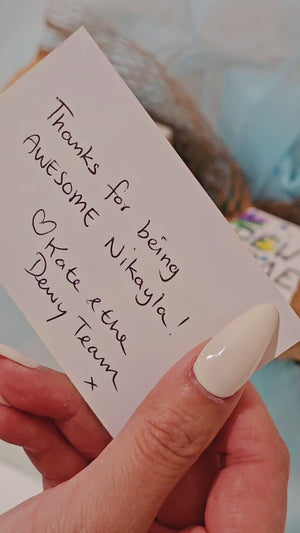 Thanks for being
AWESOME Nikayla!
♡ Kate & the
Dewy Team
x